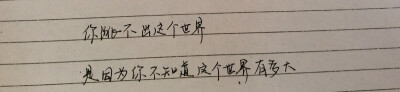 你跳不出这个世界
是因为你不知道这个世界有多大